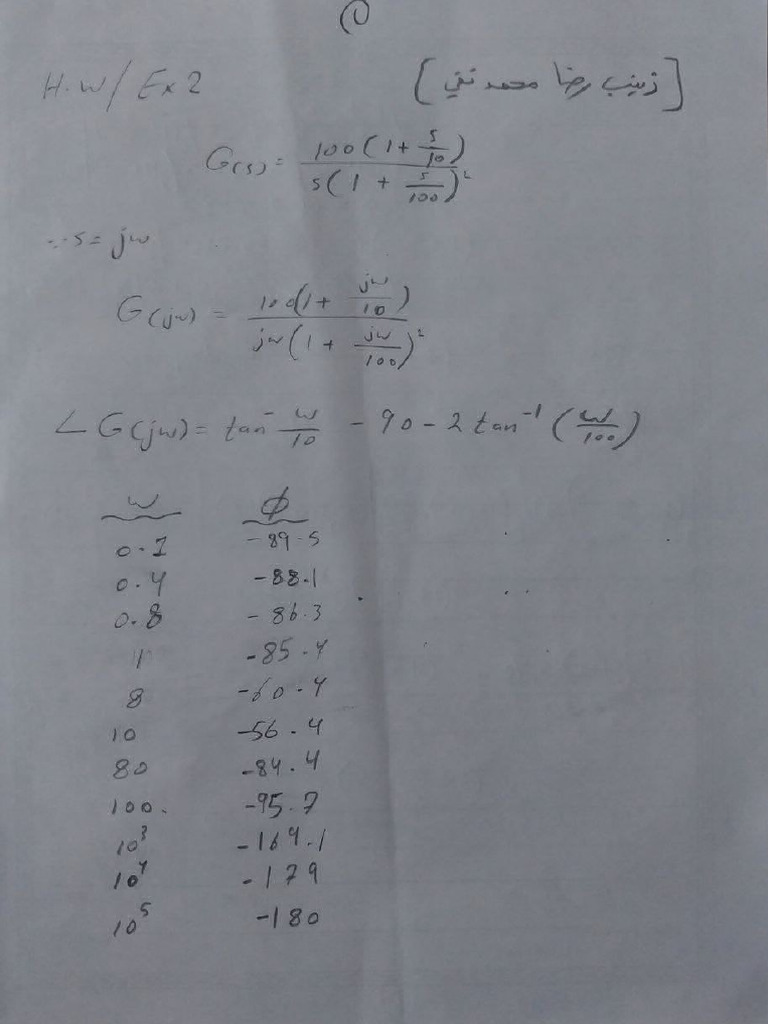 (1)
H.W/ Ex 2
[زينب رضا محمد تقي]
G(s) = 100(1 + s/10) / s(1 + s/100)²
∵ s = jw
G(jw) = 100(1 + jw/10) / jw(1 + jw/100)²
∠ G(jw) = tan⁻ w/10 - 90 - 2 tan⁻¹ (w/100)
w ϕ
0.1 -89.5
0.4 -88.1
0.8 -86.3
1 -85.4
8 -60.4
10 -56.4
80 -84.4
100. -95.7
10³ -169.1
10⁴ -179
10⁵ -180